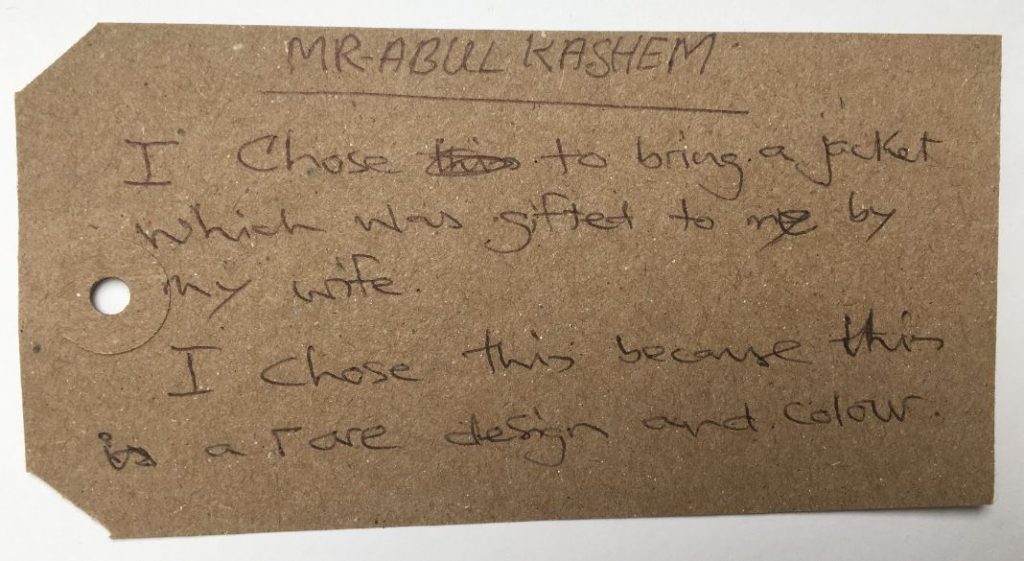 MR. ABUL KASHEM
I Chose to bring a jacket
which was gifted to me by
my wife.
I chose this because this
is a rare design and colour.